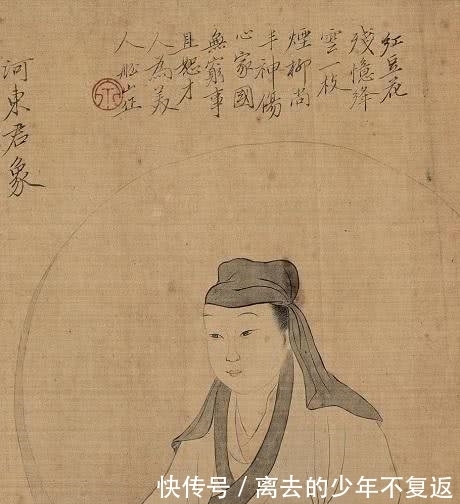 紅豆花
殘憶絳
雲一枝
煙柳尚
丰神傷
心家國
無窮事
且恕才
人為美
人 船山
河東君象
快传号 / 离去的少年不复返